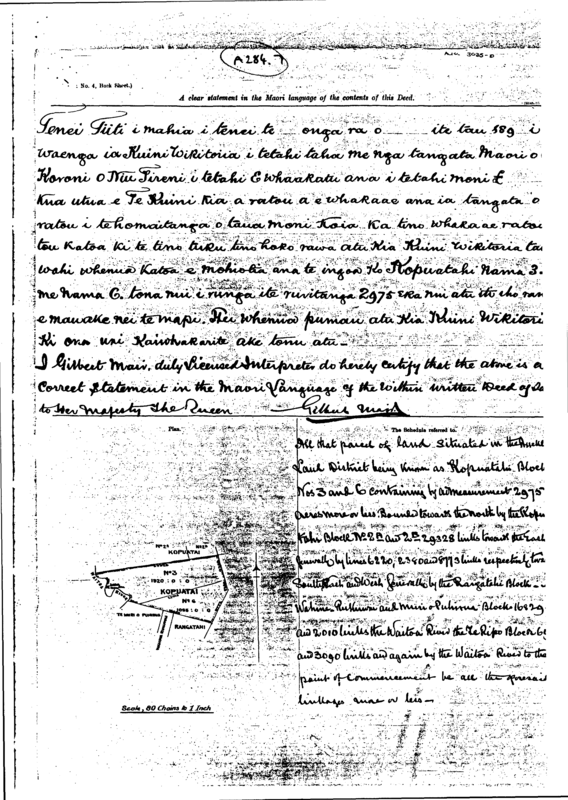 A 284. 7
No. 4, Book Sheet.)
A clear statement in the Maori language of the contents of this Deed.
Tenei Tiiti i mahia i tenei te onga ra o ite tau 189 i
waenga ia Kuini Wikitoria i tetahi taha me nga tangata Maori o
Koroni o Niu Tireni i tetahi E Whaakatu ana i tetahi moni £
Kua utua e Te Kuini Kia a ratou a e whakaae ana ia tangata o
ratou i te homaitanga o taua moni Koia. Ka tino whakaae ratou
tou Katoa ki te tino tuku tino hoko rawa atu Kia Kuini Wikitoria tau
wahi whenua Katoa e mohiotia ana te ingoa Ko Kopuatahi Nama 3.
me Nama 6. tona nui i runga ite ruritanga 2975 eka nui atu
e mauake nei te mapi. Hei Whenua pumau atu Kia Kuini Wikitori
Ki ona uri Kaiwhakarite ake tonu atu
I Gilbert Mair, duly Licensed Interpreter do hereby certify that the above is a
Correct Statement in the Maori Language of the Within written Deed of
to Her Majesty The Queen Gilbert Mair
Plan.
The Schedule referred to.
All that parcel of land situated in the
Land District being known as Kopuatahi Block
Nos 3 and 6 containing by admeasurement 2975
acres more or less Bounded towards the North by the Kopu
Block 29328 links toward the East
generally by lines 6220, 2340 and 8773 links respectively tow
South East and West generally by the Rangatahi Block
Blocks 16829
and 2010 links the Waitoa River the Te Ripo Block
and 3090 links and again by the Waitoa River to the
point of Commencement be all the
linkages more or less
KOPUATAI
No 3
1920 : 0 : 0
KOPUATAI
No 6
: 0 : 0
RANGATAHI
Scale, 80 Chains to 1 Inch